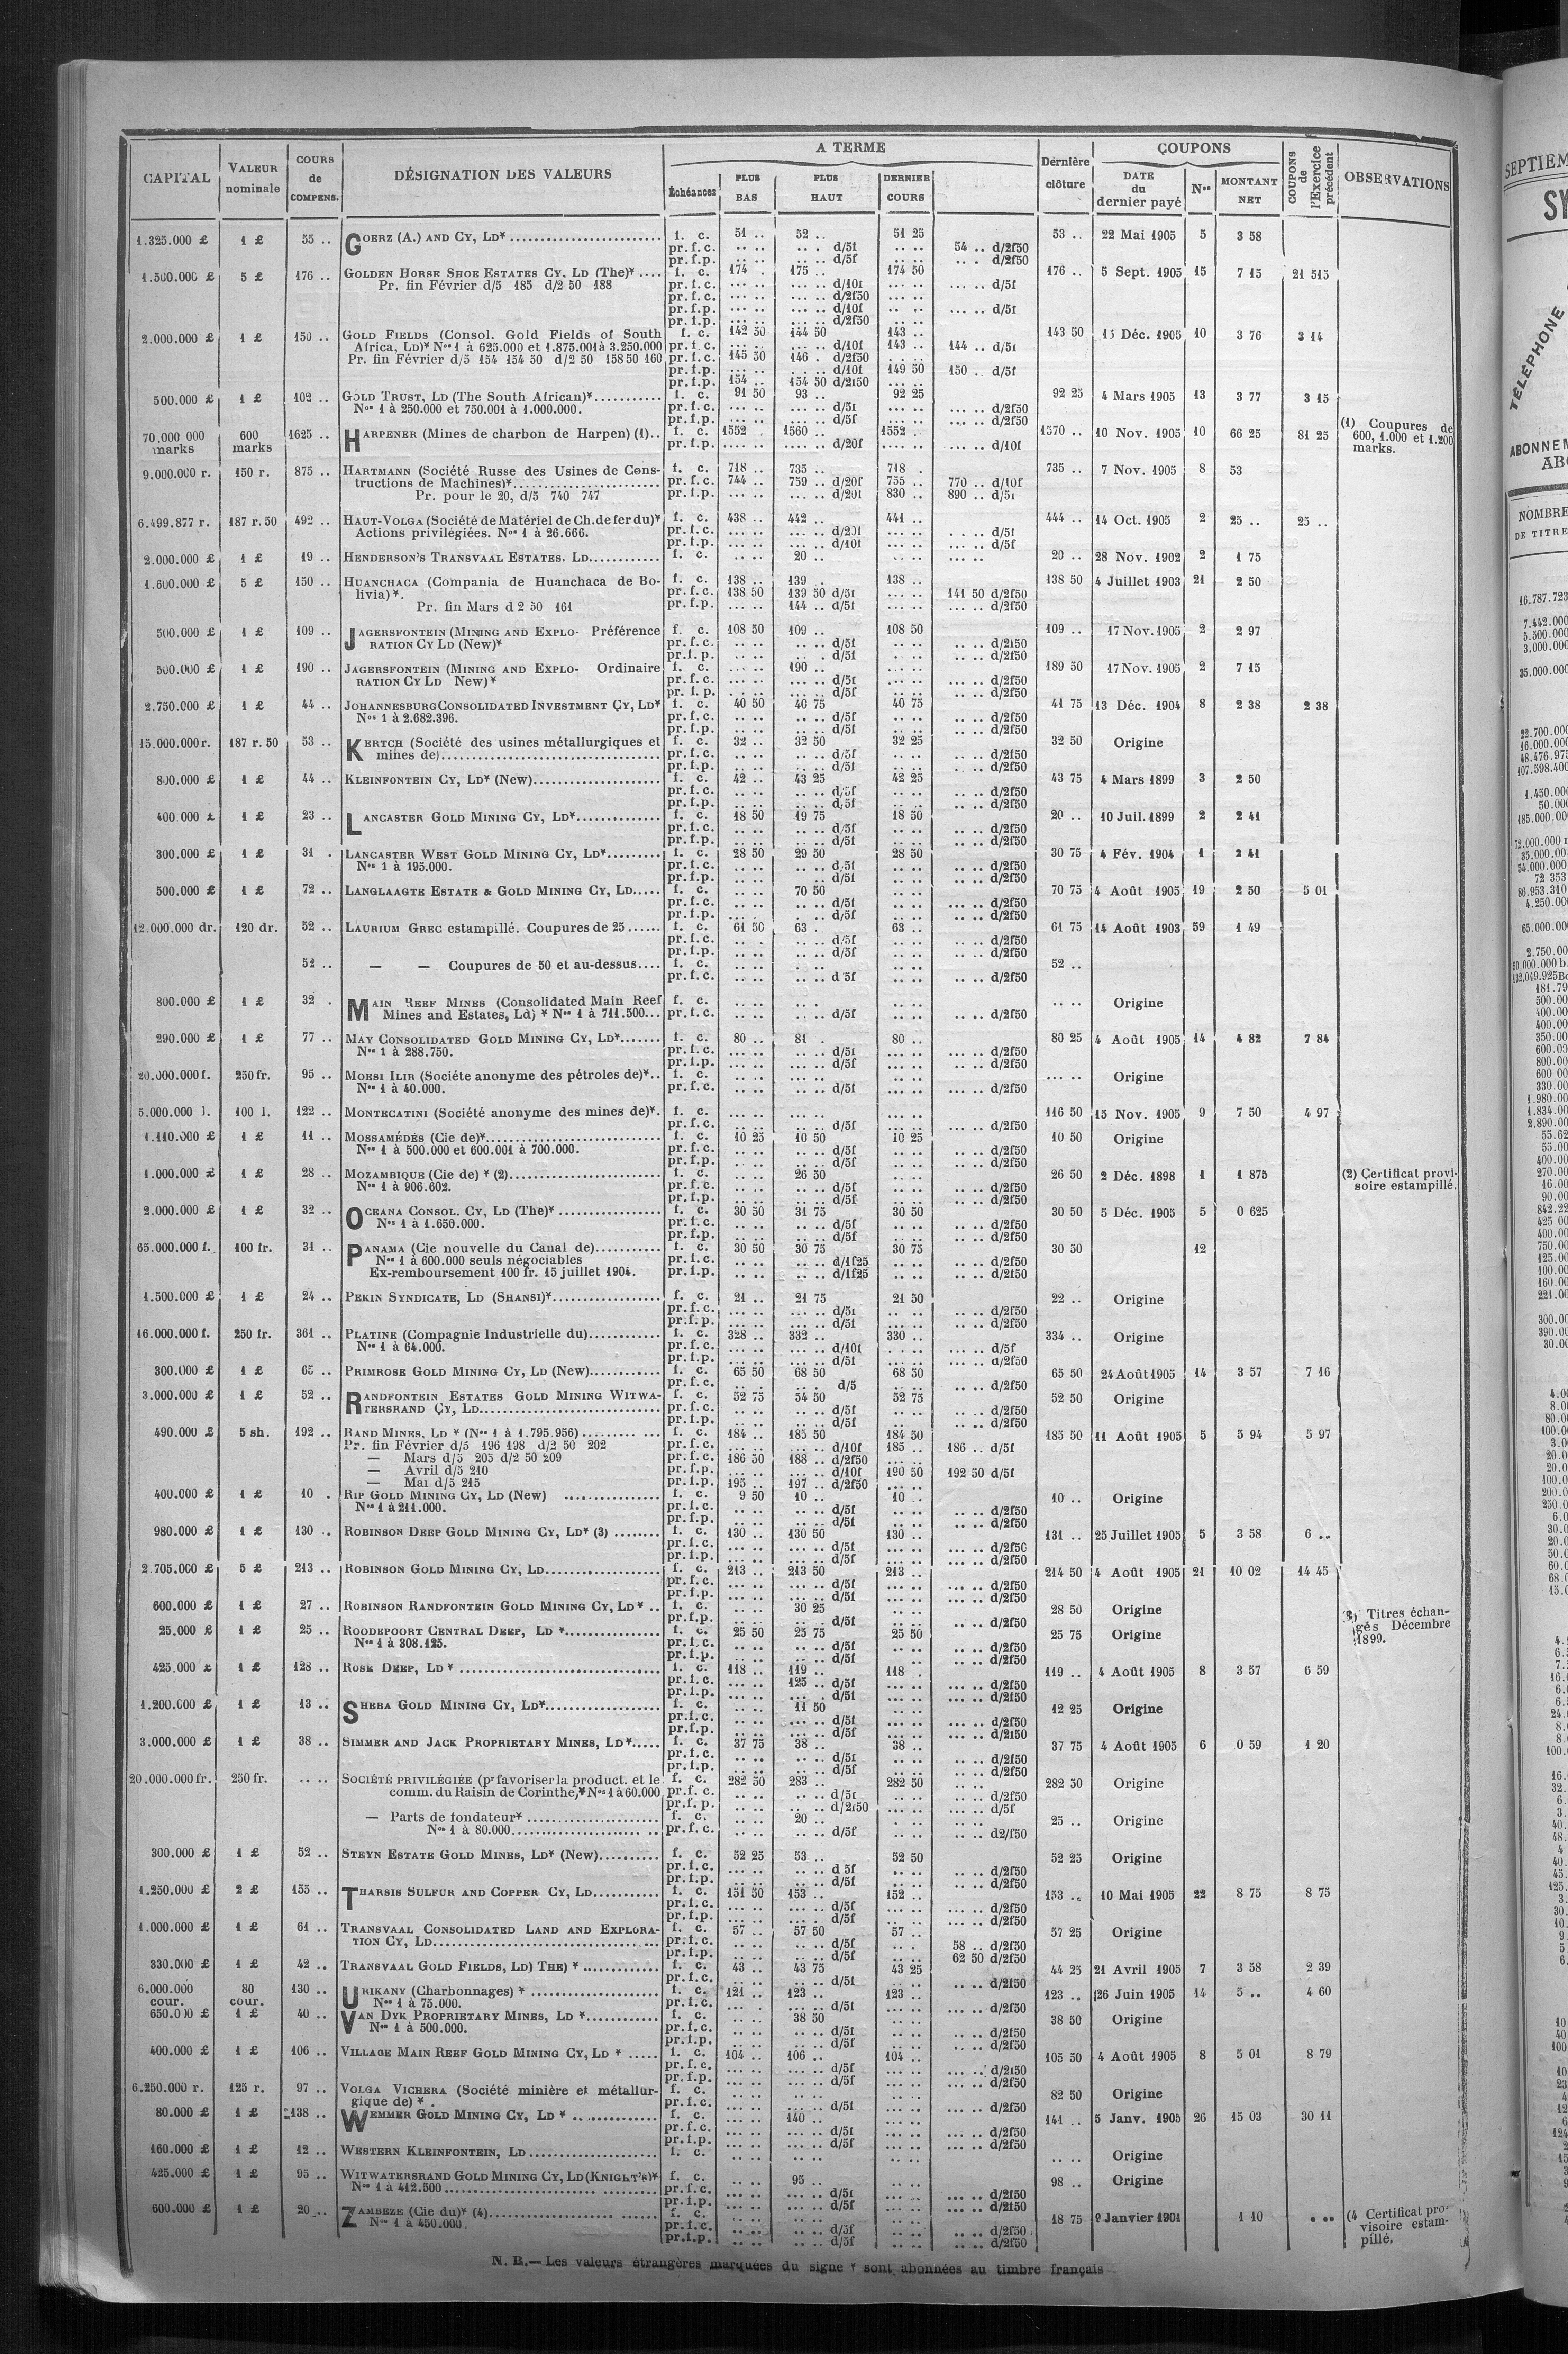 CAPITAL | VALEUR nominale | COURS de COMPENS. | DÉSIGNATION DES VALEURS | A TERME | Dernière clôture | COUPONS | COUPONS de l'Exercice précédent | OBSERVATIONS
Échéances | PLUS BAS | PLUS HAUT | DERNIER COURS | DATE du dernier payé | Nos | MONTANT NET
1.325.000 £ 1 £ 55 .. GOERZ (A.) AND CY, LD* f. c. 51 .. 52 .. 51 25 53 .. 22 Mai 1905 5 3 58
pr. f. c. .. .. .. . d/5f .. .. 54 .. d/2f50
pr. f. p. .. .. .. .. d/5f .. .. .. . d/2f50
1.500.000 £ 5 £ 176 .. GOLDEN HORSE SHOE ESTATES CY, LD (The)* f. c. 174 . 175 .. 174 50 176 .. 5 Sept. 1905 15 7 15 21 515
Pr. fin Février d/5 185 d/2 50 188 pr. f. c. d/10f d/5f
pr. f. c. d/2f50
pr. f. p. d/10f d/5f
pr. f. p. d/2f50
2.000.000 £ 1 £ 150 .. GOLD FIELDS (Consol. Gold Fields of South f. c. 142 50 144 50 143 .. 143 50 15 Déc. 1905 10 3 76 3 14
Africa, LD)* Nos 1 à 625.000 et 1.875.001 à 3.250.000 pr. f. c. d/10f 143 .. 144 .. d/5f
Pr. fin Février d/5 154 154 50 d/2 50 158 50 160 pr. f. c. 145 50 146 . d/2f50
pr. f. p. d/10f 149 50 150 .. d/5f
pr. f. p. 154 .. 154 50 d/2f50
500.000 £ 1 £ 102 .. GOLD TRUST, LD (The South African)* f. c. 91 50 93 .. 92 25 92 25 4 Mars 1905 13 3 77 3 15
Nos 1 à 250.000 et 750.001 à 1.000.000. pr. f. c. d/5f d/2f50
pr. f. p. d/5f d/2f50
70.000 000 marks 600 marks 1625 .. HARPENER (Mines de charbon de Harpen) (1).. f. c. 1552 . 1560 .. 1552 .. 1570 .. 10 Nov. 1905 10 66 25 81 25 (1) Coupures de 600, 1.000 et 1.200 marks.
pr. f. p. d/20f d/10f
9.000.000 r. 150 r. 875 .. HARTMANN (Société Russe des Usines de Cons- f. c. 718 .. 735 .. 718 . 735 .. 7 Nov. 1905 8 53
tructions de Machines)* pr. f. c. 744 .. 759 .. d/20f 755 .. 770 .. d/10f
Pr. pour le 20, d/5 740 747 pr. f. p. d/20f 830 .. 890 .. d/5f
6.499.877 r. 187 r. 50 492 .. HAUT-VOLGA (Société de Matériel de Ch. de fer du)* f. c. 438 .. 442 .. 441 .. 444 .. 14 Oct. 1905 2 25 .. 25 ..
Actions privilégiées. Nos 1 à 26.666. pr. f. c. d/20f d/5f
pr. f. p. d/10f d/5f
2.000.000 £ 1 £ 19 .. HENDERSON'S TRANSVAAL ESTATES. LD f. c. 20 .. 20 .. 28 Nov. 1902 2 1 75
1.600.000 £ 5 £ 150 .. HUANCHACA (Compania de Huanchaca de Bo- f. c. 138 .. 139 . 138 .. 138 50 4 Juillet 1903 21 2 50
livia)*. pr. f. c. 138 50 139 50 d/5f 141 50 d/2f50
Pr. fin Mars d 2 50 161 pr. f. p. 144 .. d/5f d/2f50
500.000 £ 1 £ 109 .. JAGERSFONTEIN (MINING AND EXPLO- Préférence f. c. 108 50 109 .. 108 50 109 .. 17 Nov. 1905 2 2 97
RATION CY LD (New)* pr. f. c. d/5f d/2f50
pr. f. p. d/5f d/2f50
500.000 £ 1 £ 190 .. JAGERSFONTEIN (MINING AND EXPLO- Ordinaire f. c. 190 .. 189 50 17 Nov. 1905 2 7 15
RATION CY LD New)* pr. f. c. d/5f d/2f50
pr. f. p. d/5f d/2f50
2.750.000 £ 1 £ 44 .. JOHANNESBURG CONSOLIDATED INVESTMENT CY, LD* f. c. 40 50 40 75 40 75 41 75 13 Déc. 1904 8 2 38 2 38
Nos 1 à 2.682.396. pr. f. c. d/5f d/2f50
pr. f. p. d/5f d/2f50
15.000.000 r. 187 r. 50 53 .. KERTCH (Société des usines métallurgiques et f. c. 32 .. 32 50 32 25 32 50 Origine
mines de) pr. f. c. d/5f d/2f50
pr. f. p. d/5f d/2f50
800.000 £ 1 £ 44 .. KLEINFONTEIN CY, LD* (New) f. c. 42 .. 43 25 42 25 43 75 4 Mars 1899 3 2 50
pr. f. c. d/5f d/2f50
pr. f. p. d/5f d/2f50
400.000 £ 1 £ 23 .. LANCASTER GOLD MINING CY, LD* f. c. 18 50 19 75 18 50 20 .. 10 Juil. 1899 2 2 41
pr. f. c. d/5f d/2f50
pr. f. p. d/5f d/2f50
300.000 £ 1 £ 31 . LANCASTER WEST GOLD MINING CY, LD* f. c. 28 50 29 50 28 50 30 75 4 Fév. 1904 1 2 41
Nos 1 à 195.000. pr. f. c. d/5f d/2f50
pr. f. p. d/5f d/2f50
500.000 £ 1 £ 72 .. LANGLAAGTE ESTATE & GOLD MINING CY, LD f. c. 70 50 70 75 4 Août 1905 19 2 50 5 01
pr. f. c. d/5f d/2f50
pr. f. p. d/5f d/2f50
12.000.000 dr. 120 dr. 52 .. LAURIUM GREC estampillé. Coupures de 25 f. c. 61 50 63 . 63 .. 61 75 14 Août 1903 59 1 49
pr. f. c. d/5f d/2f50
pr. f. p. d/5f d/2f50
52 .. — — Coupures de 50 et au-dessus f. c. 52 ..
pr. f. c. d 5f d/2f50
800.000 £ 1 £ 32 . MAIN REEF MINES (Consolidated Main Reef f. c. Origine
Mines and Estates, Ld) * Nos 1 à 711.500 pr. f. c. d/5f d/2f50
290.000 £ 1 £ 77 .. MAY CONSOLIDATED GOLD MINING CY, LD* f. c. 80 .. 81 . 80 .. 80 25 4 Août 1905 14 4 82 7 84
Nos 1 à 288.750. pr. f. c. d/5f d/2f50
pr. f. p. d/5f d/2f50
20.000.000 f. 250 fr. 95 .. MOESI ILIR (Sociéte anonyme des pétroles de)* f. c. Origine
Nos 1 à 40.000. pr. f. c. d/5f d/2f50
5.000.000 l. 100 l. 122 .. MONTECATINI (Société anonyme des mines de)*. f. c. 116 50 15 Nov. 1905 9 7 50 4 97
pr. f. c. d/5f d/2f50
1.110.000 £ 1 £ 11 .. MOSSAMÉDÈS (Cie de)* f. c. 10 25 10 50 10 25 10 50 Origine
Nos 1 à 500.000 et 600.001 à 700.000. pr. f. c. d/5f d/2f50
pr. f. p. d/5f d/2f50
1.000.000 £ 1 £ 28 .. MOZAMBIQUE (Cie de) * (2) f. c. 26 50 26 50 2 Déc. 1898 1 1 875 (2) Certificat provi-
Nos 1 à 906.602. pr. f. c. d/5f d/2f50 soire estampillé.
pr. f. p. d/5f d/2f50
2.000.000 £ 1 £ 32 .. OCEANA CONSOL. CY, LD (The)* f. c. 30 50 31 75 30 50 30 50 5 Déc. 1905 5 0 625
Nos 1 à 1.650.000. pr. f. c. d/5f d/2f50
pr. f. p. d/5f d/2f50
65.000.000 f. 100 fr. 31 .. PANAMA (Cie nouvelle du Canal de) f. c. 30 50 30 75 30 75 30 50 12
Nos 1 à 600.000 seuls négociables pr. f. c. d/1f25 d/2f50
Ex-remboursement 100 fr. 15 juillet 1904. pr. f. p. d/1f25 d/2f50
1.500.000 £ 1 £ 24 .. PEKIN SYNDICATE, LD (SHANSI)* f. c. 21 .. 21 75 21 50 22 .. Origine
pr. f. c. d/5f d/2f50
pr. f. p. d/5f d/2f50
16.000.000 f. 250 fr. 361 .. PLATINE (Compagnie Industrielle du) f. c. 328 .. 332 .. 330 .. 334 .. Origine
Nos 1 à 64.000. pr. f. c. d/10f d/5f
pr. f. p. d/5f d/2f50
300.000 £ 1 £ 65 .. PRIMROSE GOLD MINING CY, LD (New) f. c. 65 50 68 50 68 50 65 50 24 Août 1905 14 3 57 7 16
pr. f. c. d/5 d/2f50
3.000.000 £ 1 £ 52 .. RANDFONTEIN ESTATES GOLD MINING WITWA- f. c. 52 75 54 50 52 75 52 50 Origine
TERSRAND CY, LD pr. f. c. d/5f d/2f50
pr. f. p. d/5f d/2f50
490.000 £ 5 sh. 192 .. RAND MINES, LD * (Nos 1 à 1.795.956) f. c. 184 .. 185 50 184 50 185 50 11 Août 1905 5 5 94 5 97
Pr. fin Février d/5 196 198 d/2 50 202 pr. f. c. d/10f 185 .. 186 .. d/5f
— Mars d/5 205 d/2 50 209 pr. f. c. 186 50 188 .. d/2f50
— Avril d/5 210 pr. f. p. d/10f 190 50 192 50 d/5f
— Mai d/5 215 pr. f. p. 195 .. 197 .. d/2f50
400.000 £ 1 £ 10 . RIP GOLD MINING CY, LD (New) f. c. 9 50 10 .. 10 .. 10 .. Origine
Nos 1 à 211.000. pr. f. c. d/5f d/2f50
pr. f. p. d/5f d/2f50
980.000 £ 1 £ 130 .. ROBINSON DEEP GOLD MINING CY, LD* (3) f. c. 130 .. 130 50 130 .. 131 .. 25 Juillet 1905 5 3 58 6 ..
pr. f. c. d/5f d/2f50
pr. f. p. d/5f d/2f50
2.705.000 £ 5 £ 213 .. ROBINSON GOLD MINING CY, LD f. c. 213 .. 213 50 213 .. 214 50 4 Août 1905 21 10 02 14 45
pr. f. c. d/5f d/2f50
pr. f. p. d/5f d/2f50
600.000 £ 1 £ 27 .. ROBINSON RANDFONTEIN GOLD MINING CY, LD* .. f. c. 30 25 28 50 Origine (3) Titres échan-
pr. f. p. d/5f d/2f50 gés Décembre
25.000 £ 1 £ 25 .. ROODEPOORT CENTRAL DEEP, LD * f. c. 25 50 25 75 25 50 25 75 Origine 1899.
Nos 1 à 308.125. pr. f. c. d/5f d/2f50
pr. f. p. d/5f d/2f50
425.000 £ 1 £ 128 .. ROSE DEEP, LD * f. c. 118 .. 119 .. 118 . 119 .. 4 Août 1905 8 3 57 6 59
pr. f. c. 125 .. d/5f d/2f50
pr. f. p. d/5f d/2f50
1.200.000 £ 1 £ 13 .. SHEBA GOLD MINING CY, LD* f. c. 11 50 12 25 Origine
pr. f. c. d/5f d/2f50
pr. f. p. d/5f d/2f50
3.000.000 £ 1 £ 38 .. SIMMER AND JACK PROPRIETARY MINES, LD* f. c. 37 75 38 .. 38 .. 37 75 4 Août 1905 6 0 59 1 20
pr. f. c. d/5f d/2f50
pr. f. p. d/5f d/2f50
20.000.000 fr. 250 fr. .. .. SOCIÉTÉ PRIVILÉGIÉE (pr favoriser la product. et le f. c. 282 50 283 .. 282 50 282 50 Origine
comm. du Raisin de Corinthe)* Nos 1 à 60.000 pr. f. c. d/5f d/2f50
pr. f. p. d/2f50 d/5f
— Parts de fondateur* f. c. 20 .. 25 .. Origine
Nos 1 à 80.000 pr. f. c. d/5f d2/f50
300.000 £ 1 £ 52 .. STEYN ESTATE GOLD MINES, LD* (New) f. c. 52 25 53 .. 52 50 52 25 Origine
pr. f. c. d 5f d/2f50
pr. f. p. d/5f d/2f50
1.250.000 £ 2 £ 155 .. THARSIS SULFUR AND COPPER CY, LD f. c. 151 50 153 .. 152 .. 153 .. 10 Mai 1905 22 8 75 8 75
pr. f. c. d/5f d/2f50
pr. f. p. d/5f d/2f50
1.000.000 £ 1 £ 61 .. TRANSVAAL CONSOLIDATED LAND AND EXPLORA- f. c. 57 .. 57 50 57 .. 57 25 Origine
TION CY, LD pr. f. c. d/5f 58 .. d/2f50
pr. f. p. d/5f 62 50 d/2f50
330.000 £ 1 £ 42 .. TRANSVAAL GOLD FIELDS, LD) THE) * f. c. 43 .. 43 75 43 25 44 25 21 Avril 1905 7 3 58 2 39
pr. f. c. d/5f d/2f50
6.000.000 cour. 80 cour. 130 .. URIKANY (Charbonnages) * f. c. 121 .. 123 .. 123 .. 123 .. 26 Juin 1905 14 5 .. 4 60
Nos 1 à 75.000. pr. f. c. d/5f d/2f50
650.000 £ 1 £ 40 .. VAN DYK PROPRIETARY MINES, LD * f. c. 38 50 38 50 Origine
Nos 1 à 500.000. pr. f. c. d/5f d/2f50
pr. f. p. d/5f d/2f50
400.000 £ 1 £ 106 .. VILLAGE MAIN REEF GOLD MINING CY, LD * f. c. 104 .. 106 .. 104 .. 105 50 4 Août 1905 8 5 01 8 79
pr. f. c. d/5f d/2f50
pr. f. p. d/5f d/2f50
6.250.000 r. 125 r. 97 .. VOLGA VICHERA (Société minière et métallur- f. c. 82 50 Origine
gique de) * . pr. f. c. d/5f d/2f50
80.000 £ 1 £ 138 .. WEMMER GOLD MINING CY, LD * f. c. 140 .. 141 .. 5 Janv. 1905 26 15 03 30 11
pr. f. c. d/5f d/2f50
pr. f. p. d/5f d/2f50
160.000 £ 1 £ 12 .. WESTERN KLEINFONTEIN, LD f. c. Origine
425.000 £ 1 £ 95 .. WITWATERSRAND GOLD MINING CY, LD (KNIGHT'S)* f. c. 95 .. 98 .. Origine
Nos 1 à 412.500 pr. f. c. d/5f d/2f50
pr. f. p. d/5f d/2f50
600.000 £ 1 £ 20 .. ZAMBEZE (Cie du)* (4) f. c. 18 75 2 Janvier 1901 1 10 (4 Certificat pro-
Nos 1 à 450.000. pr. f. c. d/5f d/2f50 visoire estam-
pr. f. p. d/5f d/2f50 pillé.
N. B.— Les valeurs étrangères marquées du signe * sont abonnées au timbre français
SEPTIEM
SY
TÉLÉPHONE
ABONNEM
NOMBRE
DE TITRE